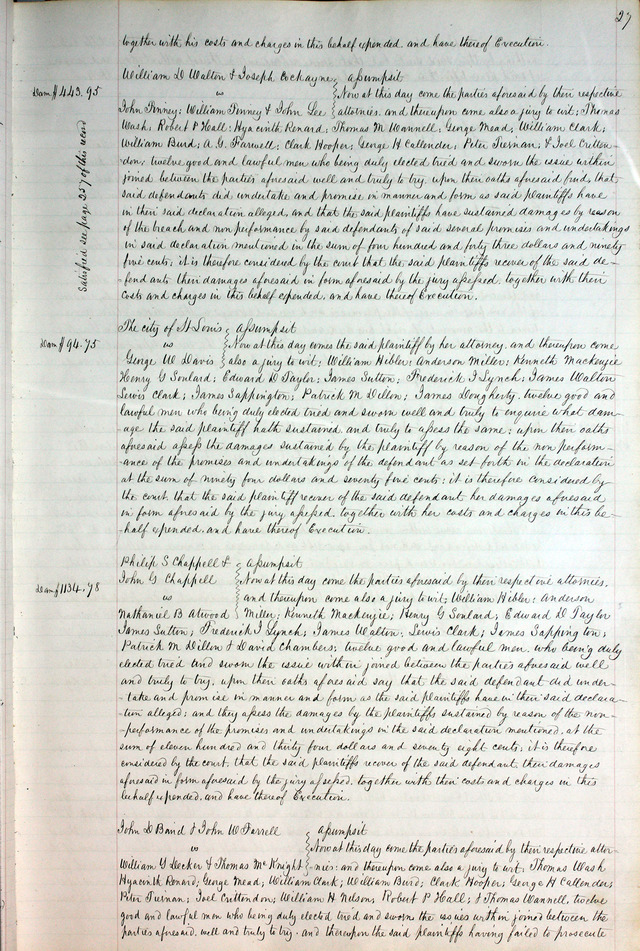 27
together with his costs and charges in this behalf expended. and have thereof Execution.
William D Walton & Joseph Cockayne } assumpsit
Dam $443.95
vs
Now at this day come the parties aforesaid by their respective
John Finney; William Finney & John Lee } attornies. and thereupon come also a jury to wit; Thomas
Wash; Robert P Hall; Hyacinth Renard; Thomas M Wannell; George Mead; William Clark;
William Bird; A. G. Farwell; Clark Hooper; George H Callender; Peter Tiernan; & Joel Critten-
-don; twelve good and lawful men who being duly elected tried and sworn the issue within
joined between the parties aforesaid well and truly to try, upon their oaths aforesaid find, that
said defendants did undertake and promise in manner and form as said plaintiffs have
in their said declaration alleged, and that the said plaintiffs have sustained damages by reason
of the breach and non performance by said defendants of said several promises and undertakings
in said declaration mentioned in the sum of four hundred and forty three dollars and ninety
five cents; it is therefore considered by the court that the said plaintiffs recover of the said de-
-fendants their damages aforesaid in form aforesaid by the jury assessed, together with their
costs and charges in this behalf expended, and have thereof Execution.
Satisfied see page 257 of this record
The city of St Louis } assumpsit
Dam $94.75
vs
Now at this day comes the said plaintiff by her attorney, and thereupon come
George W Davis } also a jury to wit; William Hibler; Anderson Miller; Kenneth Mackenzie
Henry G Soulard; Edward D Taylor; James Sutton; Frederick J Lynch; James Walton
Lewis Clark; James Sappington; Patrick M Dillon; James Dougherty. twelve good and
lawful men who being duly elected tried and sworn well and truly to enquire what dam-
age the said plaintiff hath sustained. and truly to assess the same; upon their oaths
aforesaid assess the damages sustained by the plaintiff by reason of the non perform-
-ance of the promises and undertakings of the defendant as set forth in the declaration
at the sum of ninety four dollars and seventy five cents; it is therefore considered by
the court that the said plaintiff recover of the said defendant her damages aforesaid
in form aforesaid by the jury assessed, together with her costs and charges in this be-
-half expended, and have thereof Execution.
Philip S Chappell & } assumpsit
Dam $1134.78
John G Chappell } Now at this day come the parties aforesaid by their respective attornies.
vs
and thereupon come also a jury to wit; William Hibler; Anderson
Nathaniel B Atwood } Miller; Kenneth Mackenzie; Henry G Soulard; Edward D Taylor
James Sutton; Frederick J Lynch; James Walton; Lewis Clark; James Sappington;
Patrick M Dillon & David Chambers; twelve good and lawful men. who being duly
elected tried and sworn the issue within joined between the parties aforesaid well
and truly to try, upon their oaths aforesaid say that the said defendant did under-
-take and promise in manner and form as the said plaintiffs have in their said declara-
-tion alleged; and they assess the damages by the plaintiffs sustained by reason of the non-
-performance of the promises and undertakings in the said declaration mentioned, at the
sum of eleven hundred and thirty four dollars and seventy eight cents; it is therefore
considered by the court that the said plaintiffs recover of the said defendant their damages
aforesaid in form aforesaid by the jury assessed, together with their costs and charges in this
behalf expended, and have thereof Execution.
John D Baird & John W Farrell } assumpsit
vs
Now at this day come the parties aforesaid by their respective attor-
William G Decker & Thomas McKnight } -nies; and thereupon come also a jury to wit; Thomas Wash
Hyacinth Renard; George Mead; William Clark; William Bird; Clark Hooper; George H Callender;
Peter Tiernan; Joel Crittendon; William H Nelson; Robert P Hall; & Thomas Wannell, twelve
good and lawful men who being duly elected tried and sworn the issues within joined between the
parties aforesaid, well and truly to try. and thereupon the said plaintiffs having failed to prosecute